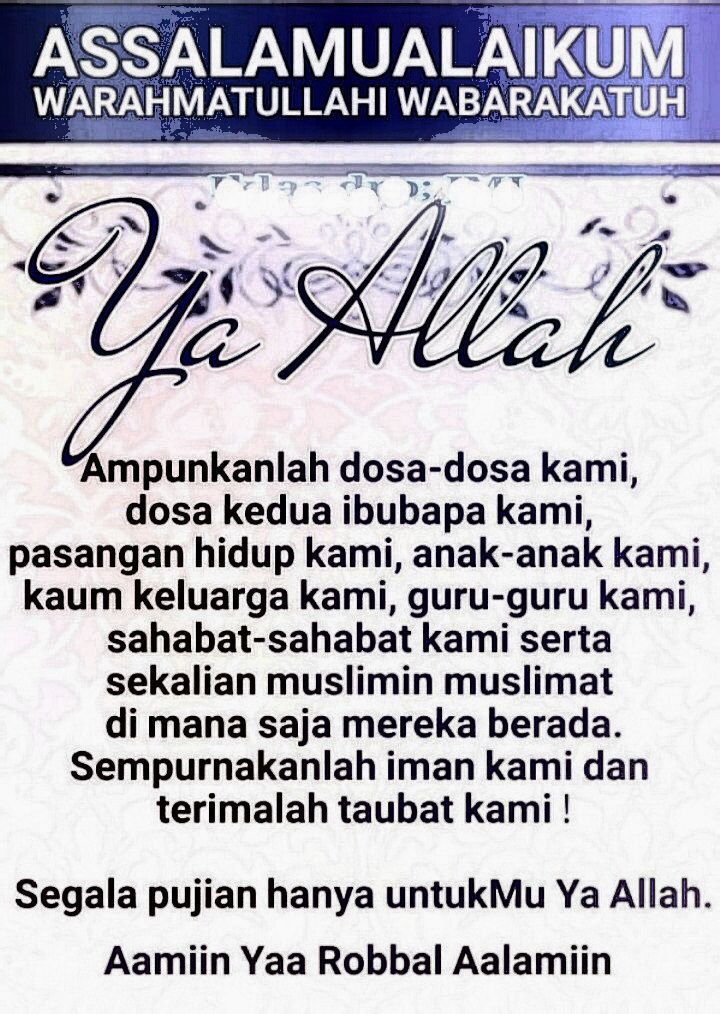 ASSALAMUALAIKUM
WARAHMATULLAHI WABARAKATUH
Ya Allah
Ampunkanlah dosa-dosa kami,
dosa kedua ibubapa kami,
pasangan hidup kami, anak-anak kami,
kaum keluarga kami, guru-guru kami,
sahabat-sahabat kami serta
sekalian muslimin muslimat
di mana saja mereka berada.
Sempurnakanlah iman kami dan
terimalah taubat kami !
Segala pujian hanya untukMu Ya Allah.
Aamiin Yaa Robbal Aalamiin